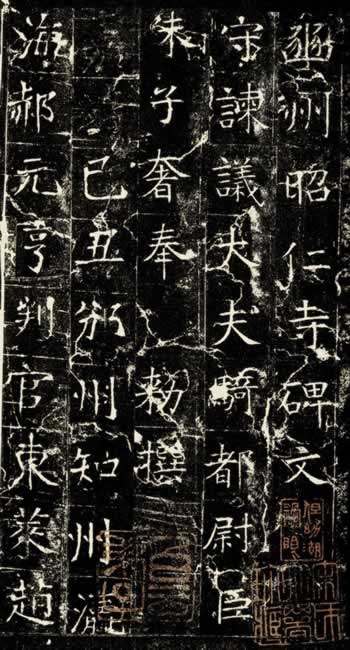 豳州昭仁寺碑文
守諫議大夫騎都尉臣
朱子奢奉 勑撰
己丑邠州知州
海郝元亨判官東萊趙